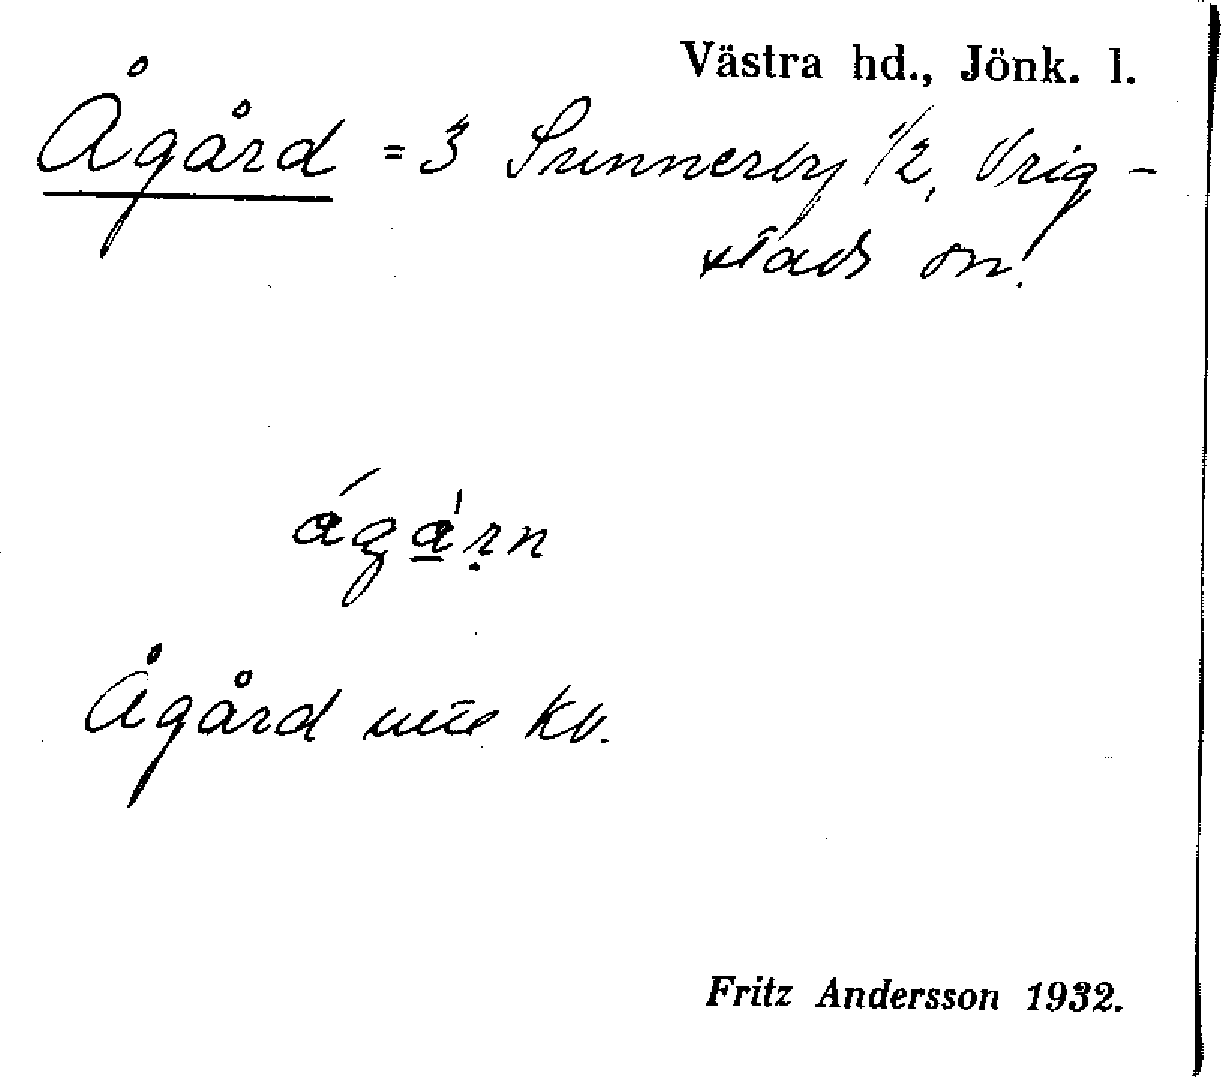 Västra hd., Jönk. l.
Ågård = 3 Sunnerby 1/2, Vrig-
stads sn.
ágárn
Ågård ute kv.
Fritz Andersson 1932.